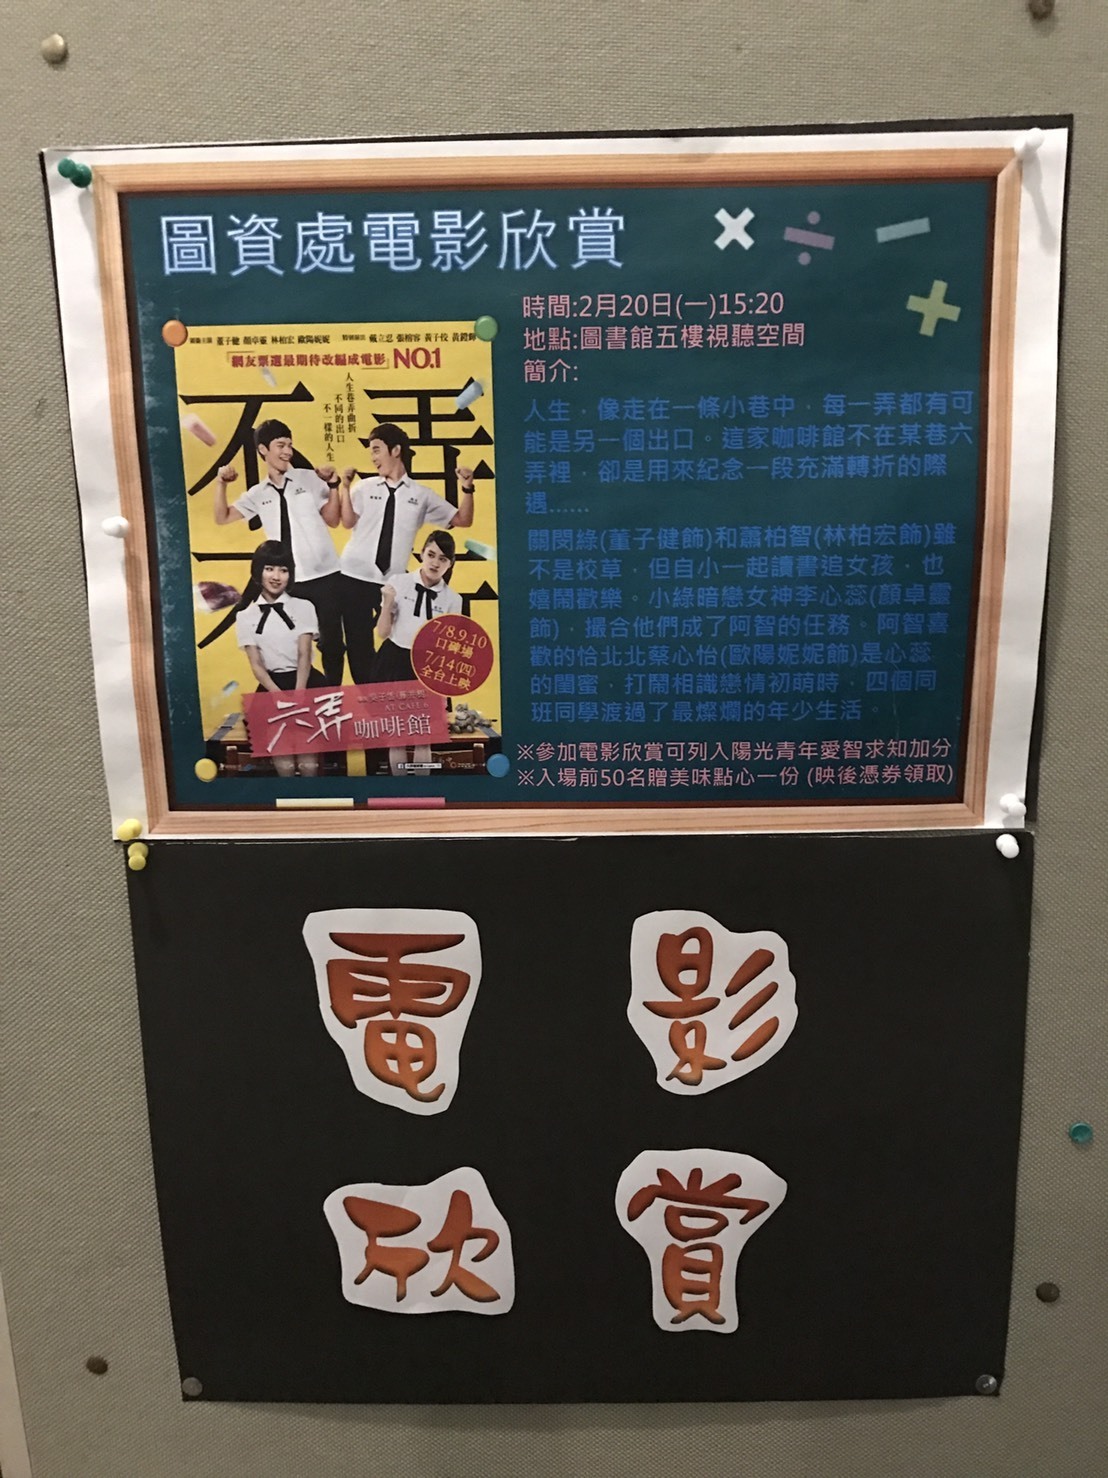 圖資處電影欣賞
時間:2月20日(一)15:20
地點:圖書館五樓視聽空間
簡介:
人生，像走在一條小巷中，每一弄都有可
能是另一個出口。這家咖啡館不在某巷六
弄裡，卻是用來紀念一段充滿轉折的際
遇......
關閔綠(董子健飾)和蕭柏智(林柏宏飾)雖
不是校草，但自小一起讀書追女孩，也
嬉鬧歡樂。小綠暗戀女神李心蕊(顏卓靈
飾)，撮合他們成了阿智的任務。阿智喜
歡的恰北北蔡心怡(歐陽妮妮飾)是心蕊
的閨蜜，打鬧相識戀情初萌時，四個同
班同學渡過了最燦爛的年少生活。
※參加電影欣賞可列入陽光青年愛智求知加分
※入場前50名贈美味點心一份 (映後憑券領取)
董子健 顏卓靈 林柏宏 歐陽妮妮
戴立忍 張榕容 黃子佼 黃鐙輝
「網友票選最期待改編成電影」NO.1
不弄
人生巷弄曲折
不同的出口
不一樣的人生
7/8.9.10
口碑場
7/14(四)
全台上映
六弄咖啡館
電影
欣賞